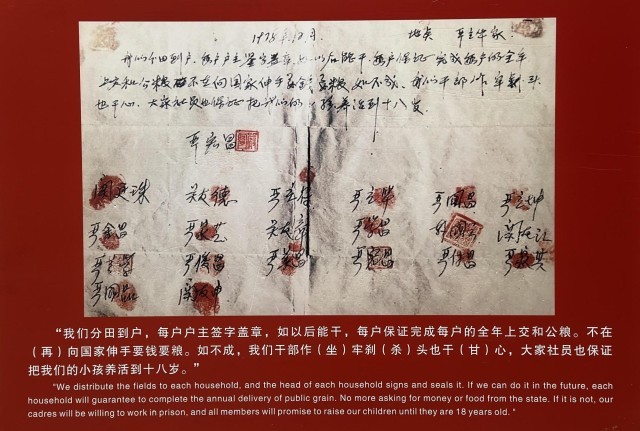 1978年12月 地点 严立华家
我们分田到户,每户户主签字盖章,如以后能干,每户保证完成每户的全年
上交和公粮,不在向国家伸手要钱要粮,如不成,我们干部作牢刹头
也干心,大家社员也保证把我们的小孩养活到十八岁。
严宏昌
关廷珠 关友德 严立符 严立华 严国昌 严立坤
严金昌 严家芝 关友章 严学昌 韩国云 关友江
严立学 严俊昌 严美昌 严宏昌 严付昌 严家其
严国品 关友申
“我们分田到户,每户户主签字盖章,如以后能干,每户保证完成每户的全年上交和公粮。不在
(再)向国家伸手要钱要粮。如不成,我们干部作(坐)牢刹(杀)头也干(甘)心,大家社员也保证
把我们的小孩养活到十八岁。”
"We distribute the fields to each household, and the head of each household signs and seals it. If we can do it in the future, each
household will guarantee to complete the annual delivery of public grain. No more asking for money or food from the state. If it is not, our
cadres will be willing to work in prison, and all members will promise to raise our children until they are 18 years old. "